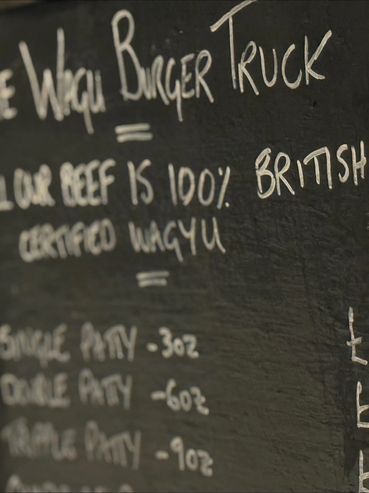 E WAGU BURGER TRUCK
L OUR BEEF IS 100% BRITISH
CERTIFIED WAGYU
SINGLE PATTY - 3oz £
DOUBLE PATTY - 6oz £
TRIPPLE PATTY - 9oz £